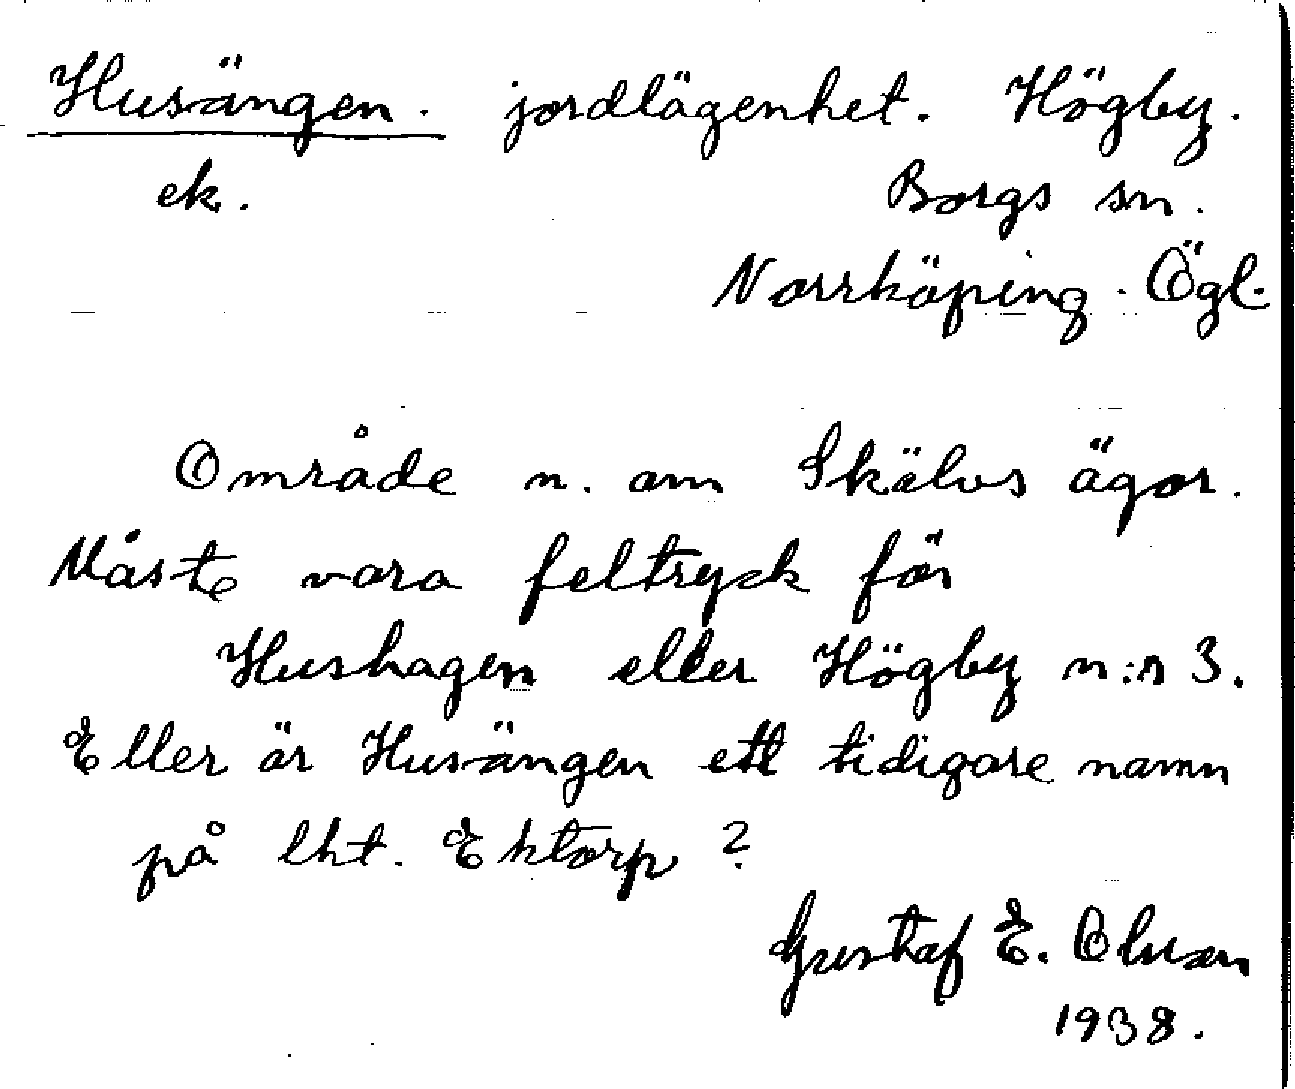 Husängen. jordlägenhet. Högby.
ek. Borgs sn.
Norrköping. Ögl.
Område n. om Skälvs ägor.
Måste vara feltryck för
Hushagen eller Högby n:r 3.
Eller är Husängen ett tidigare namn
på lht. Ektorp?
Gustaf E. Olsson
1938.